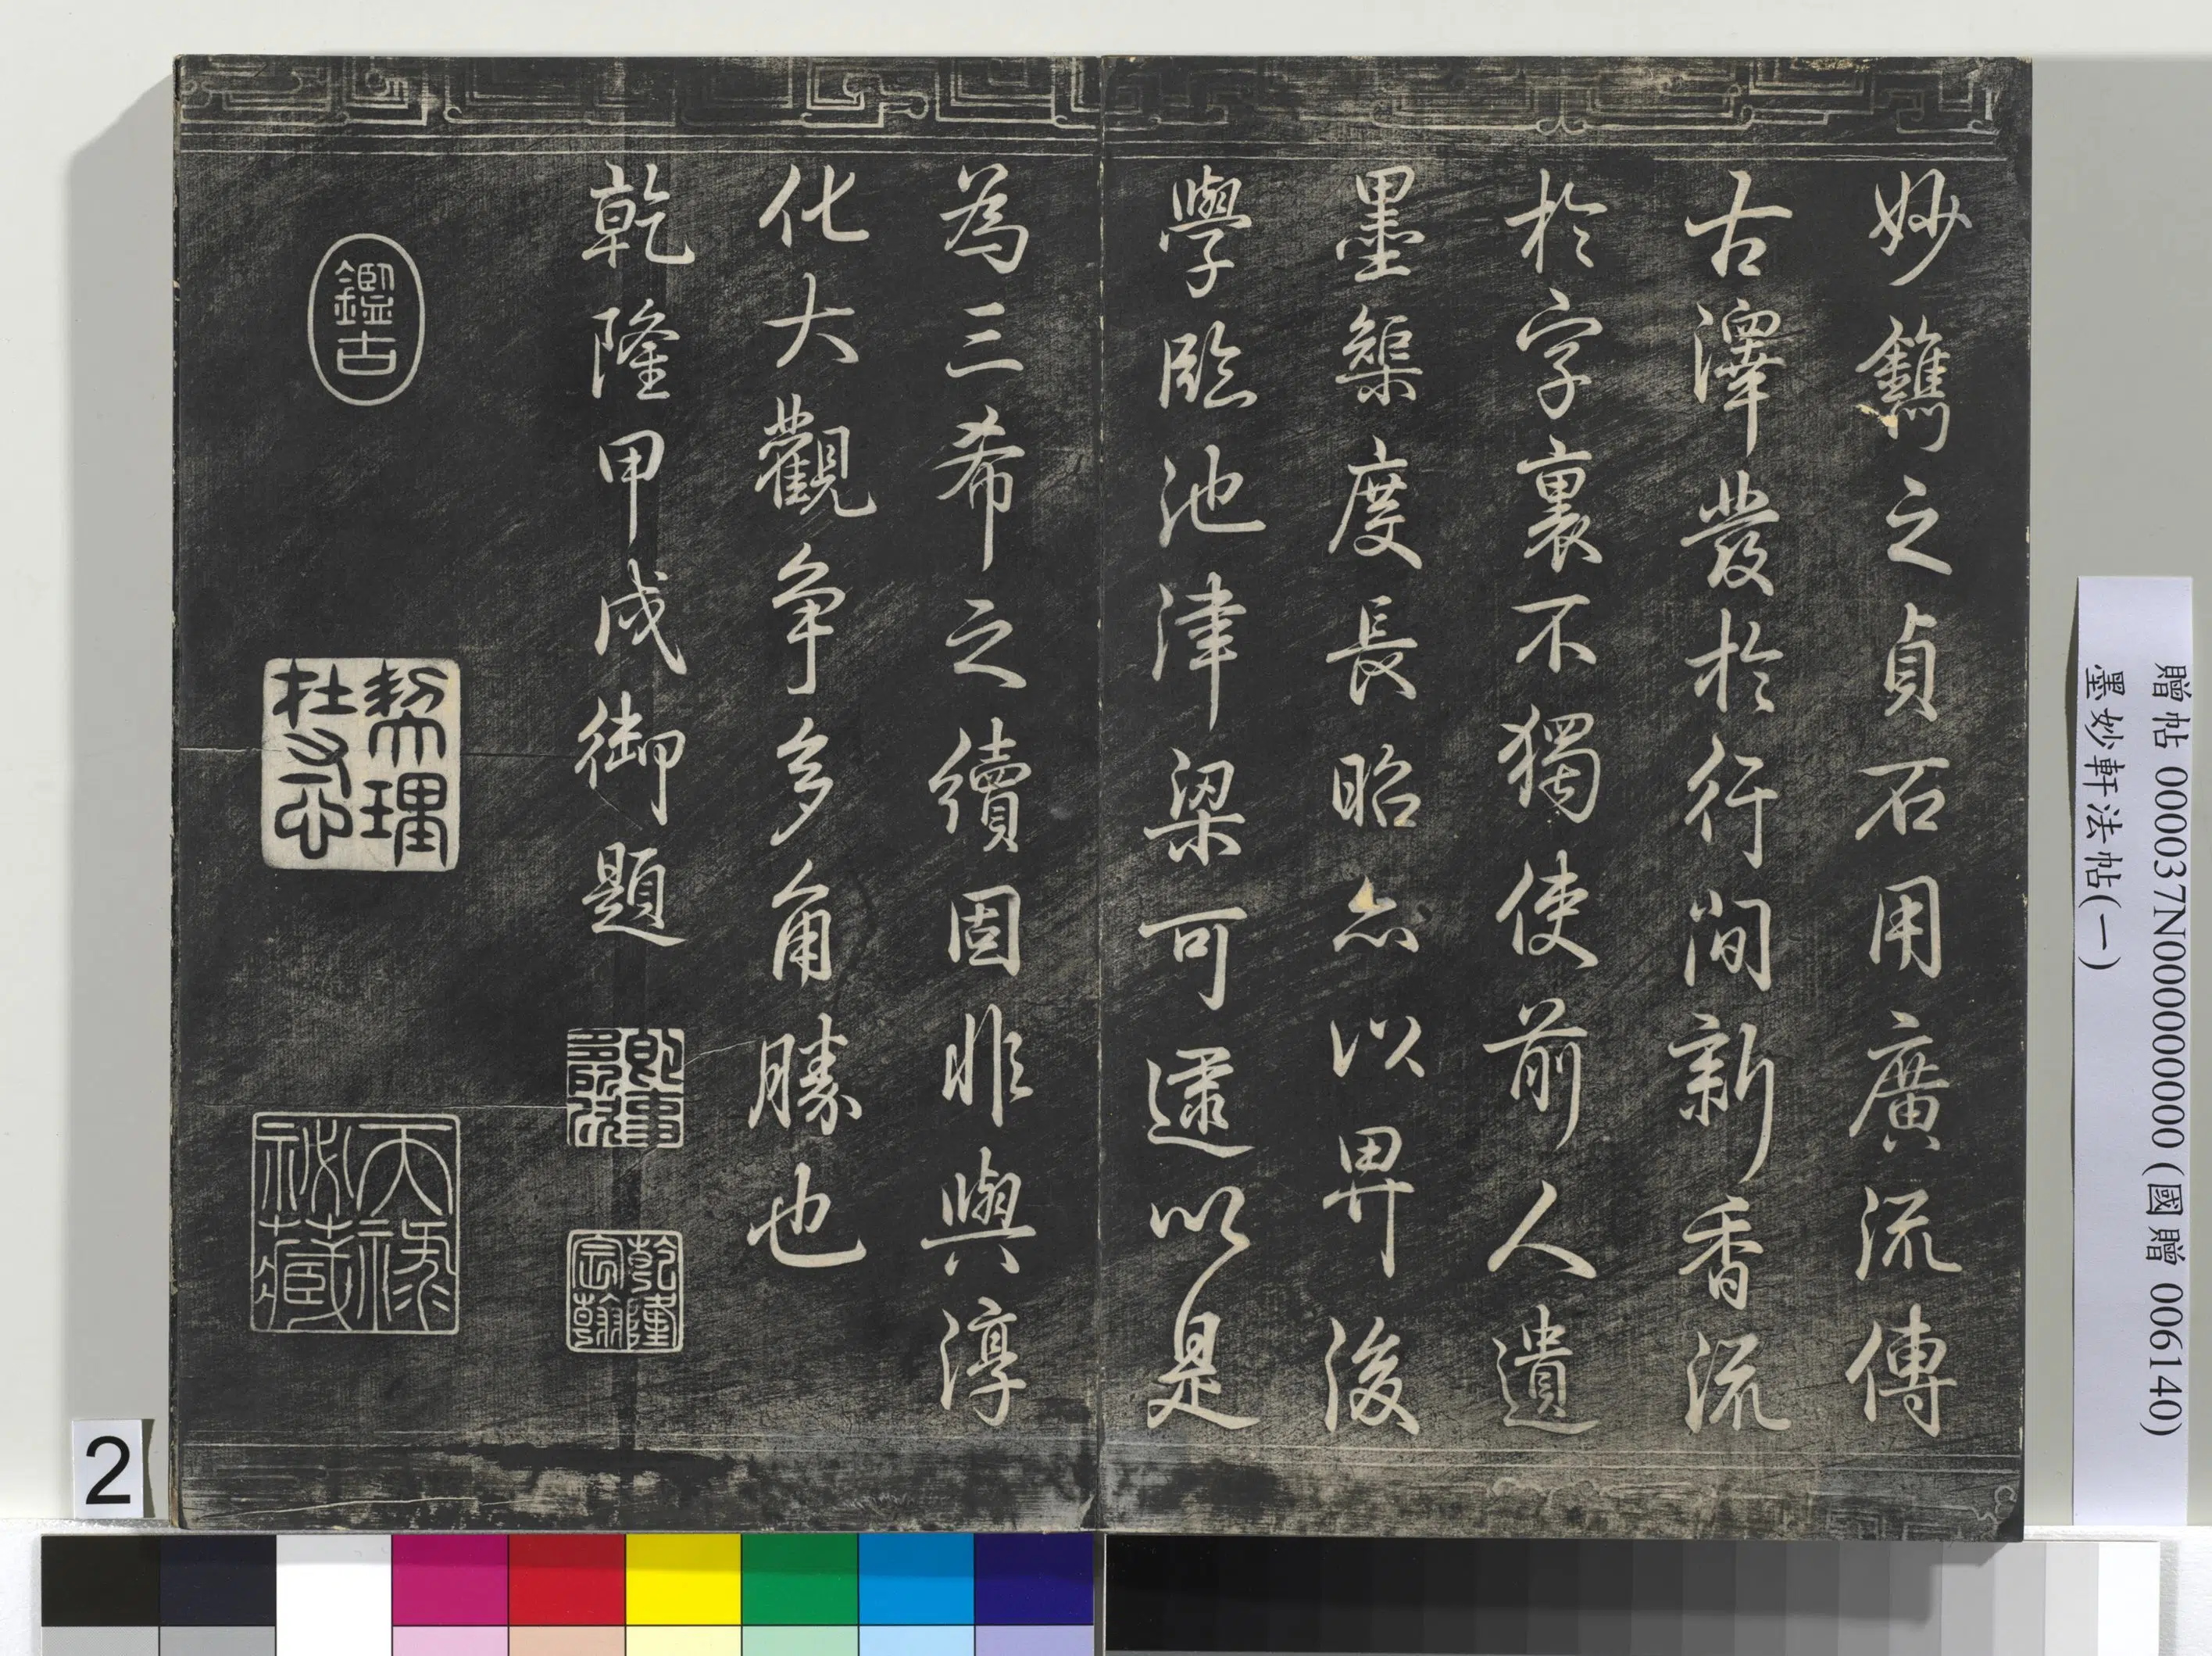 妙鐫之貞石用廣流傳
古澤發於行間新香流
於字裏不獨使前人遺
墨榘度長昭亦以畀後
學臨池津梁可逮以是
為三希之續固非與淳
化大觀争多角勝也
乾隆甲戌御題
乾隆宸翰
鑑古
契理
天祿
祕藏
贈帖 000037N000000000 (國贈 006140)
墨妙軒法帖(一)
2